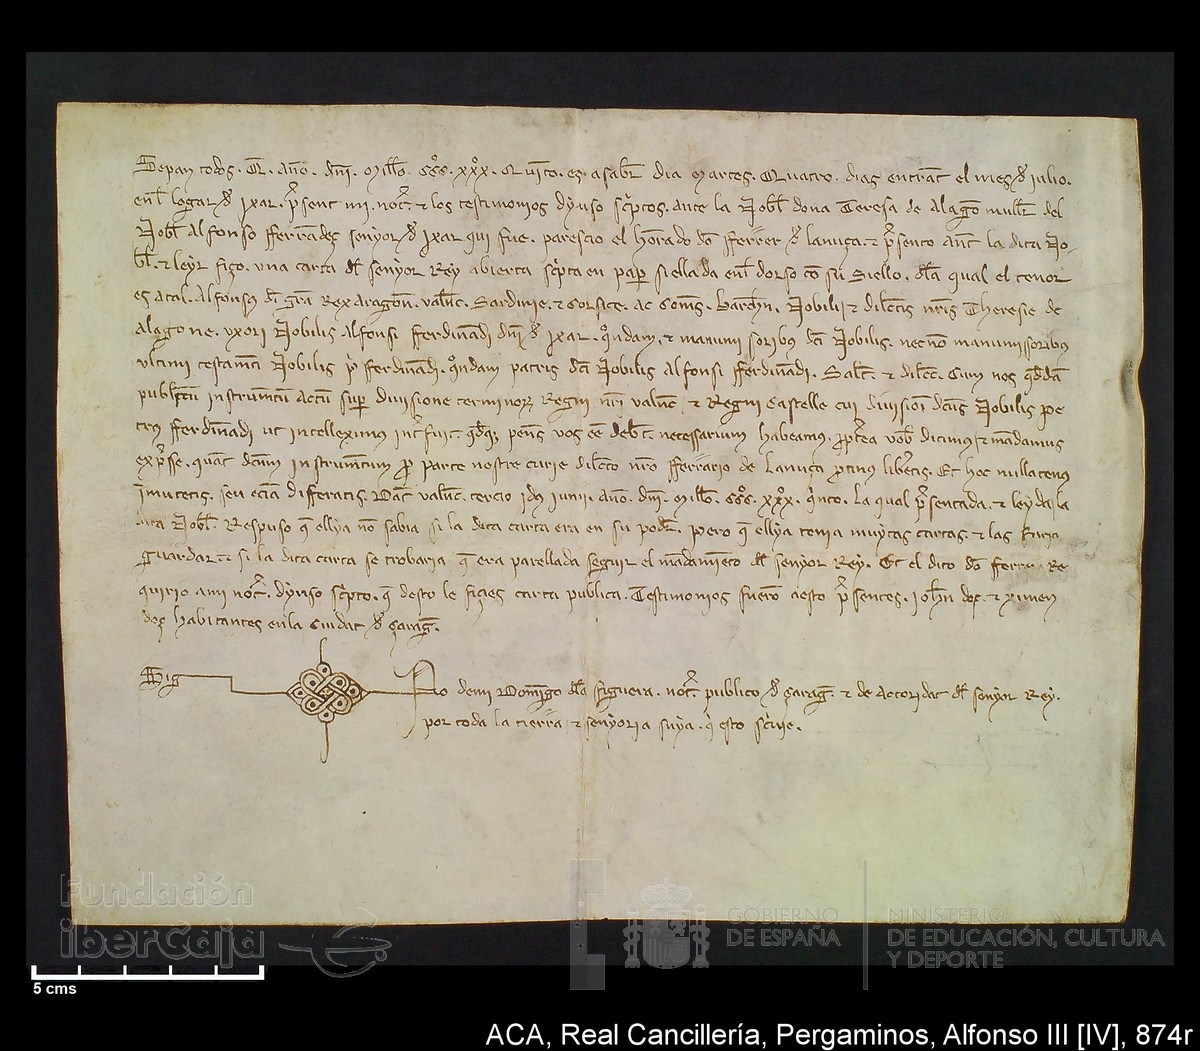 Sepan todos. Que. Año. dñi. Mill̃o. CCCº. xxxº. Quinto. es asaber dia Martes. Quatro. dias entrant el mes de julio.
enel logar de Ixar. present mi. notº. & los testimonios dyuso scriptos. ante la Nobl̃ dona Teresa de Alagon mull̃r del
Nobl̃ Alfonso fferrãdeç senyor de Ixar qui fue. parescio el hõrado dõ fferrer de lanuça. & p̃sento ant la dita No-
bl̃. & leyr fiço. una carta del senyor Rey abierta scp̃ta en paper siellada enel dorso cõ su siello. dela qual el tenor
es atal. Alfonsus di gr̃a Rex Aragoñ. valñc. Sardinie. & Corsice. ac Comes. Barchñ. Nobili & dilectis nr̃is Theresie de
Alagone. uxori Nobilis Alfonsi fferdinãdi dñi de Ixar. quondam. & manumisoribus dci Nobilis. necnõ manumissoribus
ultimi testamẽti Nobilis p̃ fferdinãdi. quondam patris dci Nobilis Alfonsi fferdinãdi. Salt̃. & dilẽc. Cum nos quoddã
publicum instrumẽtũ actũ super divisione terminorum Regni nr̃i valñc & Regni Castelle cui divisioni dcũs Nobilis Pe
trus fferdinãdi ut intelleximus int̃fuit. quodque penes vos eẽ debet. necessarium habeamus. propterea vob̃ dicimus & mãdamus
exp̃sse. quatẽ dcũm instrumẽtum pro parte nostre curie dilecto nr̃o fferrario de Lanuça protinus libretis. Et hoc nullatenus
imutetis. seu eciã differatis. Dat̃ valñc. tercio idus iunii. Año. dñi. Mill̃o. CCCº. xxxº. quinto. la qual p̃sentada. & leyda la
dita Nobl̃. Respuso que ellya nõ sabia si la dita carta era en su poder. Pero que ellya tenia muytas cartas. & las faria
guardar. & si la dita carta se trobaria. que era parellada seguir el mãdamiẽto del senyor Rey. Et el dito dõ fferrer Re
quirio ami notº. dyuso scripto. que desto le fiçies carta publica. Testimonios fuerõ aesto p̃sentes. Johñ & Ximen
habitantes enla Ciudat de Çaragᵃ.
Sig no demi Domĩgo dela figuera. notº. publico de Çaragᵃ. & de actoridat del senyor Rey.
por toda la tierra & senyoria suya. qui esto scriuie.
Fundación
iberCaja
GOBIERNO
DE ESPAÑA
MINISTERIO
DE EDUCACIÓN, CULTURA
Y DEPORTE
5 cms
ACA, Real Cancillería, Pergaminos, Alfonso III [IV], 874r